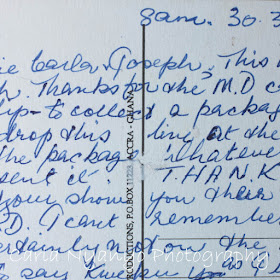 9am. 30.3
ie Carla + Joseph. This i
h. Thanks for the M.D c
lip - to collect a package
drop this line at the
the package whatever
sent it. THANK
your show you their
D. I cant remembe
certainly not on the
to say Kweku
RODUCTIONS, P.O. BOX ACCRA - GHANA
Carla Nyanyo Photography